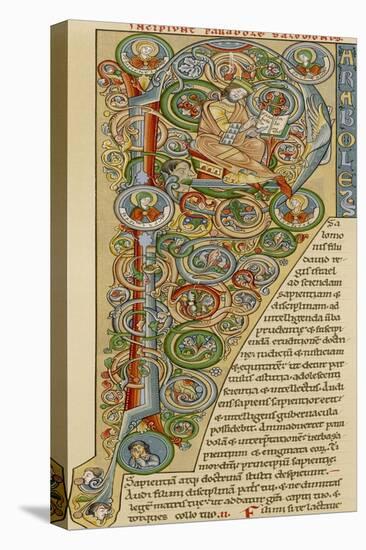 Incipiunt parabole salomonis.
PARABOLES
Sa
lomo
nis filii
david re
gis israel
ad sciendam
sapientiam &
disciplinam. ad
intelligenda v̄ba
prudentie & suscipi
endā eruditionē doctri
ne. iudiciū & iusticiam
& equitatem. ut detur par
vulis astutia. adolescenti
scientia & intellectus. Audi
ens sapiens sapientior erit.
& intelligens gubernacula
possidebit. Animadvertet para
bolam & interpretationē. verba sapi
entium & enigmata eoꝝ. Ti
mor dn̄i. principium sapientie.
Sapientiam atq; doctrinā stulti despiciunt.
Audi fili mi disciplinam patris tui. & ne dimittas
legem matris tue. ut addatur grā capiti tuo. &
torques collo tuo. Fili mi si te lactave